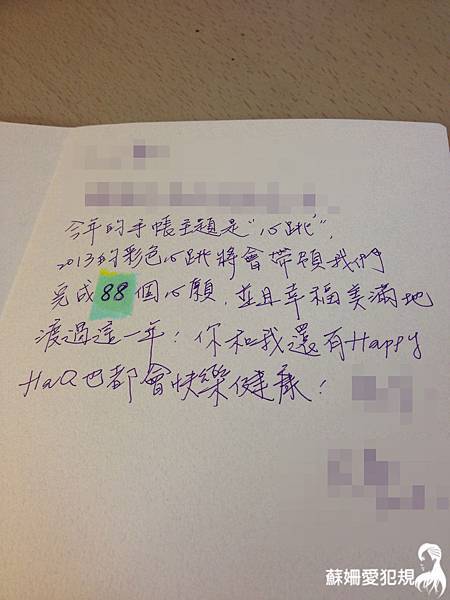 今年的手帳主題是"心跳",
2013的彩色心跳將會帶領我們
完成88個心願,並且幸福美滿地
渡過這一年!你和我還有Happy
HaQ巴都會快樂健康!
蘇姍愛犯規